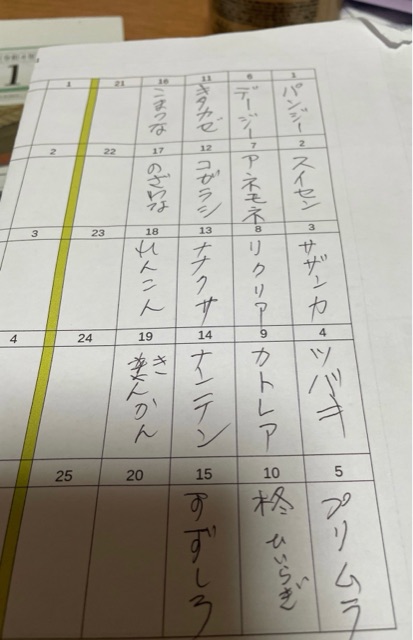 1
パンジー
2
スイセン
3
サザンカ
4
ツバキ
5
プリムラ
6
デージー
7
アネモネ
8
リクリア
9
カトレア
10
柊 ひいらぎ
11
キタカゼ
12
コガラシ
13
ナナクサ
14
ナインテン
15
すずしろ
16
こまつな
17
のざわな
18
れんこん
19
きんかん
20
21
22
23
24
25
1
2
3
4
1